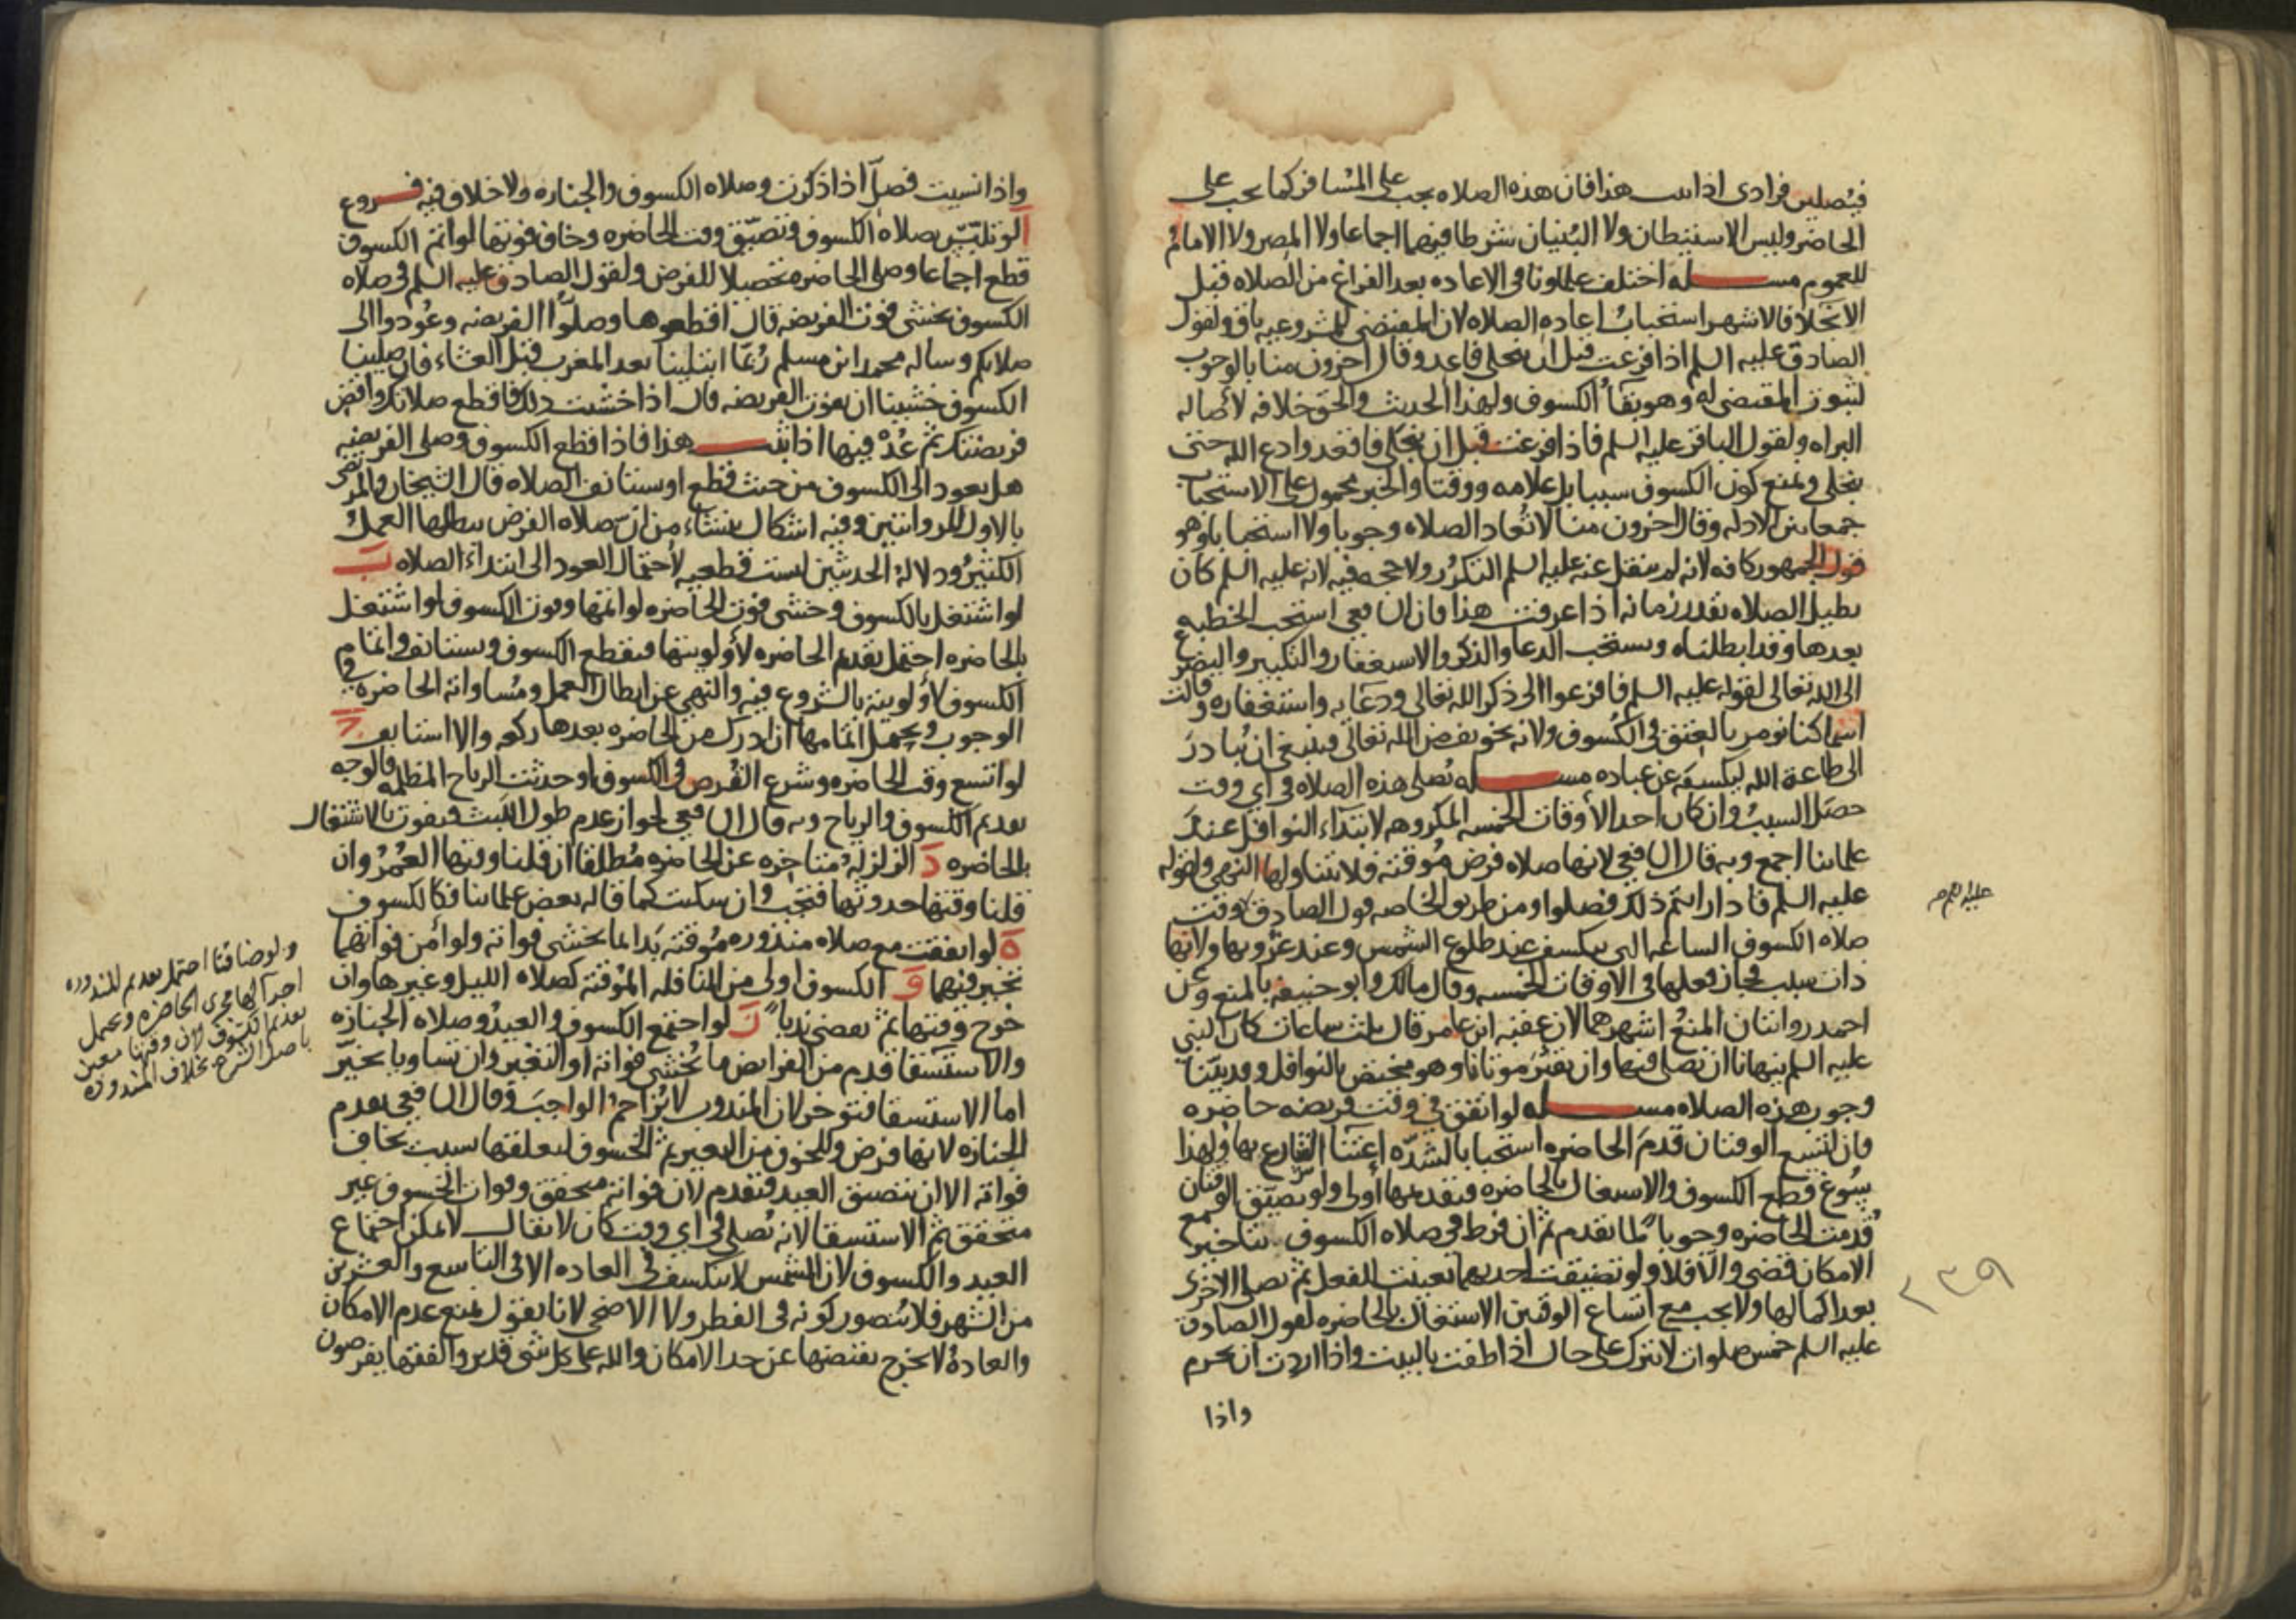 فيصلين فرادى اذا ثبت هذا فان هذه الصلاه يجب على المسافر كما يجب على
الحاضر وليس الاستيطان ولا البنيان شرطا فيهما اجماعا ولا المصر ولا الامام
للعموم مسله اختلف علماونا فى الاعاده بعد الفراغ من الصلاه قبل
الانجلا فالاشهر استحباب اعاده الصلاه لان المقتضى للمشروعيه باق ولقول
الصادق عليه السلم اذا فرغت قبل ان ينجلى فاعد وقال اخرون منا بالوجوب
لثبوت المقتضى له وهو بقاُ الكسوف ولهذا الحديث والحق خلافه لأصاله
البراه ولقول الباقر عليه السلم فاذا فرغت قبل ان ينجلى فاقعد وادع الله حتى
ينجلى ونمنع كون الكسوف سببا بل علامه ووقتا والخبر محمول على الاستحباب
جمعا بين الادله وقال اخرون منا لا تُعاد الصلاه وجوبا ولا استحبابا وهو
قول الجمهور كافه لانه لم ينقل عنه عليه السلم التكرُر ولا حجه فيه لانه عليه السلم كان
يطيل الصلاه بقدر زمانه اذا عرفت هذا فان الشافعى استحب الخطبه
بعدها وقد ابطلناه ويستحب الدعا والذكر والاستغفار والتكبير والتضرع
الى الله تعالى لقوله عليه السلم فافزعوا الى ذكر الله تعالى ودعايه واستغفاره وقالت
اسما كنا نومر بالعتق فى الكسوف ولانه تخويف من الله تعالى فينبغى ان يُبادرَ
الى طاعة الله ليكشفه عن عباده مسله تُصلى هذه الصلاه فى اي وقت
حصل السببُ وان كان احد الأوقات الخمسه المكروهه لابتداء النوافل عند
علماينا اجمع وبه قال الشافعى لانها صلاه فرض مُوقته فلا يتناولها النهى ولقوله
عليه السلم فاذا رايتم ذلك فصلوا ومن طريق الخاصه قول الصادق وقت
صلاه الكسوف الساعه التى ينكسف عند طلوع الشمس وعند غروبها ولانها
ذات سبب فجاز فعلها فى الاوقات الخمسه وقال مالك وابو حنيفه بالمنع وعن
احمد روايتان المنعُ اشهرهما لان عقبه ابن عامر قال ثلث ساعات كان النبي
عليه السلم ينهانا ان نصلى فيها وان نقبرَ موتانا وهو مختص بالنوافل وقد بيّنا
وجوب هذه الصلاه مسله لو اتفق فى وقت فريضه حاضره
فان اتسع الوقتان قدمَ الحاضره استحبابا لشدّه اعتنا الشارع بها ولهذا
سُوغ قطع الكسوف والاشتغال بالحاضره فتقديمها أولى ولو تضيّق الوقتان
قُدمت الحاضره وجوباً لما تقدم ثم ان فرط فى صلاه الكسوف بتاخير مع
الامكان قضى والّا فلا ولو تضيقت احديهما تعينت للفعل ثم تصلى الاخرى
بعد اكمالها ولا يجب مع اتساع الوقتين الاشتغال بالحاضره لقول الصادق
عليه السلم خمس صلوات لا تترك على حال اذا طفت بالبيت واذا اردت ان تحرم
واذا
عليه السلم
٢٣٩
واذا نسيت فصلّ اذا ذكرت وصلاه الكسوف والجنازه ولا خلاف فيه فروع
ا لو تلبّس بصلاه الكسوف وتضيّق وقت الحاضره وخاف فوتها لو اتم الكسوف
قطع اجماعا وصلى الحاضره تحصيلا للفرض ولقول الصادق عليه السلم فى صلاه
الكسوف نخشى فوت الفريضه قال اقطعوها وصلّوا الفريضه وعُودوا الى
صلاتكم وساله محمد ابن مسلم رُبّما ابتلينا بعد المغرب قبل العشاء فان صلينا
الكسوف خشينا ان تفوت الفريضه قال اذا خشيت ذلك فاقطع صلاتك واقض
فريضتك ثم عُدْ فيها اذا ثبت هذا فاذا قطع الكسوف وصلى الفريضه
هل يعود الى الكسوف من حيث قطع او يستانف الصلاه قال الشيخان والمرتضى
بالاول للروايتين وفيه اشكال ينشاء من ان صلاه الفرض يبطلها العملُ
الكثيرُ ودلالة الحديثين ليست قطعيه لأحتمال العود الى ابتداء الصلاه ب
لو اشتغل بالكسوف وخشى فوت الحاضره لو اتمها وفوت الكسوف لو اشتغل
بالحاضره احتمل تقديم الحاضره لأولويتها فيقطع الكسوف ويستانف واتمام
الكسوف لأولويته بالشروع فيه والنهى عن ابطال العمل ومُساواته الحاضره فى
الوجوب ويحتمل اتمامها ان ادرك من الحاضره بعدها ركعه والا استانف ج
لو اتسع وقت الحاضره وشرع القُرص فى الكسوف او حدثت الرياح المظلمه فالوجه
تقديم الكسوف والرياح وبه قال الشافعى لجواز عدم طول اللبث فيفوت بالاشتغال
بالحاضره د الزلزلة متاخره عن الحاضره مُطلقا ان قلنا وقتها العُمُرُ وان
قلنا وقتها حدوثها فتجب وان سكنت كما قاله بعض علماينا فكالكسوف
ه لو اتفقت مع صلاه منذوره مُوقته بَدا بما يخشى فواته ولو أمن فواتهما
تخير فيهما و الكسوف اولى من النافله المُوقته كصلاه الليل وغيرها وان
خرج وقتها ثم تقضى ندباً ز لو اجتمع الكسوف والعيدُ وصلاه الجنازه
والاستسقا قدم من الفرايض ما يُخشى فواته او التغير وان تساويا تخيّر
اما الاستسقا فتوخر لان المندوب لا يُزاحم الواجبَ وقال الشافعى يقدم
الجنازه لانها فرض وللخوف من التغير ثم الخسوف لتعلقها بسبب يخاف
فواته الا ان يتضيق العيد فتقدم لان فواته متحقق وفوات الخسوف غير
متحقق ثم الاستسقا لانه تُصلى فى اي وقت كان لا يقال لا يمكن اجتماع
العيد والكسوف لان الشمس لا ينكسف فى العاده الا فى التاسع والعشرين
من الشهر فلا يُتصور كونه فى الفطر ولا الاضحى لانا نقول نمنع عدم الامكان
والعادة لا تخرج نقيضها عن حد الامكان والله على كل شى قدير والفقها يفرضون
ولو ضاقتا احتمل تقديم المنذوره
اجرآ لها مجرى الحاضره ويحتمل
تقديم الكسوف لان وقتها معين
باصل الشرع بخلاف المنذوره